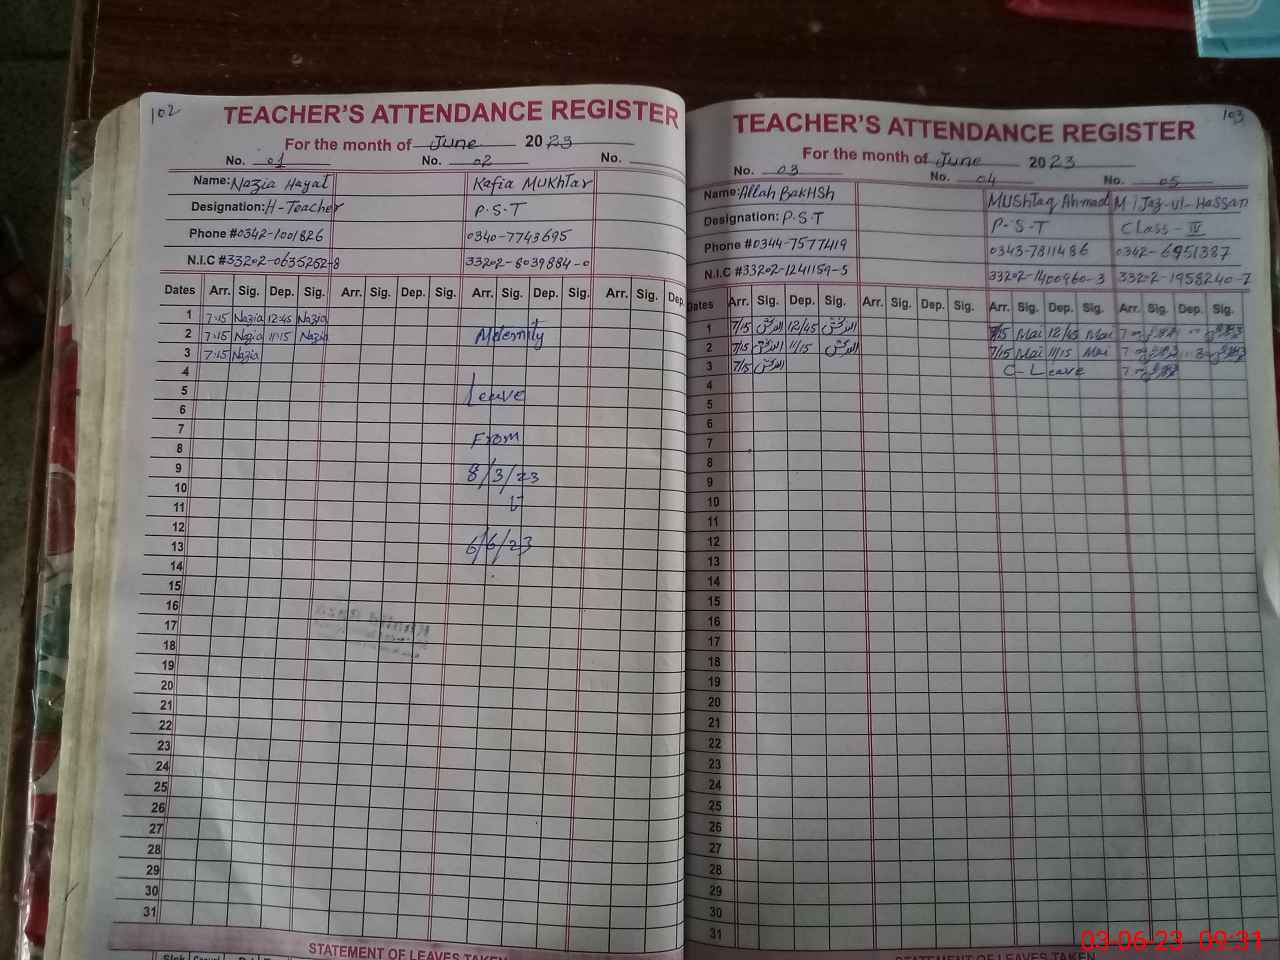 102
TEACHER'S ATTENDANCE REGISTER
For the month of June 2023
No. 01 No. 02 No.
Name: Nazia Hayat Kafia Mukhtar
Designation: H-Teacher P.S.T
Phone #0342-1001826 0340-7743695
N.I.C #33202-0635252-8 33202-8039884-0
Dates Arr. Sig. Dep. Sig. Arr. Sig. Dep. Sig. Arr. Sig. Dep. Sig. Arr. Sig. Dep.
1 7:15 Nazia 12:45 Nazia
2 7:15 Nazia 11:15 Nazia Maternity
3 7:15 Nazia
4
5 Leave
6
7 From
8
9 8/3/23
10
11
12
13 6/6/23
14
15
16
17
18
19
20
21
22
23
24
25
26
27
28
29
30
31
STATEMENT OF LEAVES TAKEN
103
TEACHER'S ATTENDANCE REGISTER
For the month of June 2023
No. 03 No. 04 No. 05
Name: Allah Bakhsh Mushtaq Ahmad M/Jaz-ul-Hassan
Designation: P.S.T P.S.T Class-IV
Phone #0344-7577419 0343-7811486 0342-6951387
N.I.C #33202-1241159-5 33202-1400960-3 33202-1958240-7
Dates Arr. Sig. Dep. Sig. Arr. Sig. Dep. Sig. Arr. Sig. Dep. Sig. Arr. Sig. Dep. Sig.
1 7/15 12/45 7/15 12/45
2 7/15 11/15 7/15 11/15
3 7/15 C-Leave
4
5
6
7
8
9
10
11
12
13
14
15
16
17
18
19
20
21
22
23
24
25
26
27
28
29
30
31
STATEMENT OF LEAVES TAKEN
03-06-23 09:31